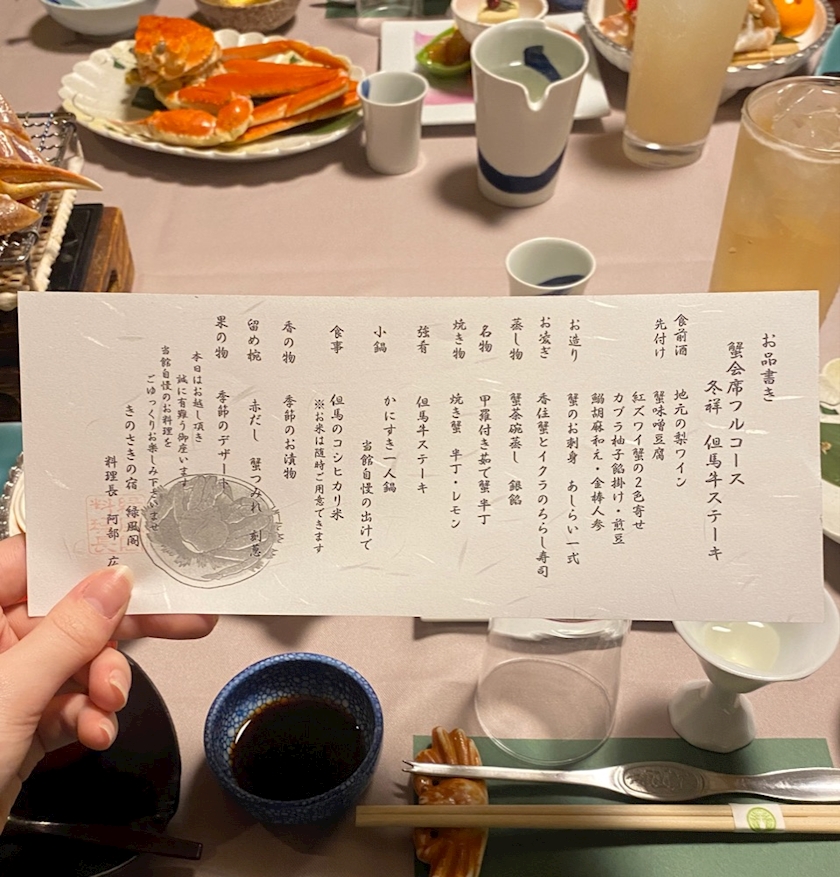 お品書き
蟹会席フルコース
冬祥 但馬牛ステーキ
食前酒 地元の梨ワイン
先付け 蟹味噌豆腐
紅ズワイ蟹の2色寄せ
カブラ柚子餡掛け・煎豆
鰯胡麻和え・金棒人参
お造り 蟹のお刺身 あしらい一式
お凌ぎ 香住蟹とイクラのちらし寿司
蒸し物 蟹茶碗蒸し 銀餡
名物 甲羅付き茹で蟹半丁
焼き物 焼き蟹 半丁・レモン
強肴 但馬牛ステーキ
小鍋 かにすき一人鍋
当館自慢の出汁で
食事 但馬のコシヒカリ米
※お米は随時ご用意できます
香の物 季節のお漬物
留め椀 赤だし 蟹つみれ 刻葱
果の物 季節のデザート
本日はお越し頂き
誠に有難う御座います
当館自慢のお料理を
ごゆっくりお楽しみ下さいませ
きのさきの宿 緑風閣
料理長 阿部 広